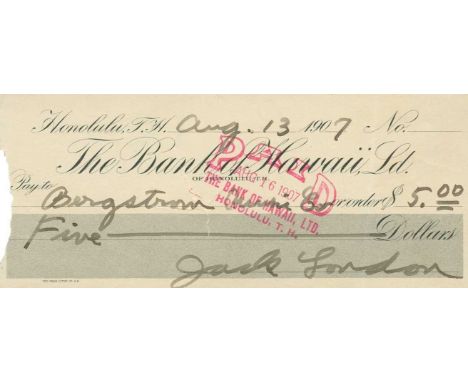 Honolulu, T.H. Aug. 13 1907 No.
The Bank of Hawaii, Ld.
OF HONOLULU, T.H.
Pay to Bergstrom Music Co or order $ 5.00
Five Dollars
Jack London
PAID
AUG 16 1907
THE BANK OF HAWAII, LTD.
HONOLULU, T. H.